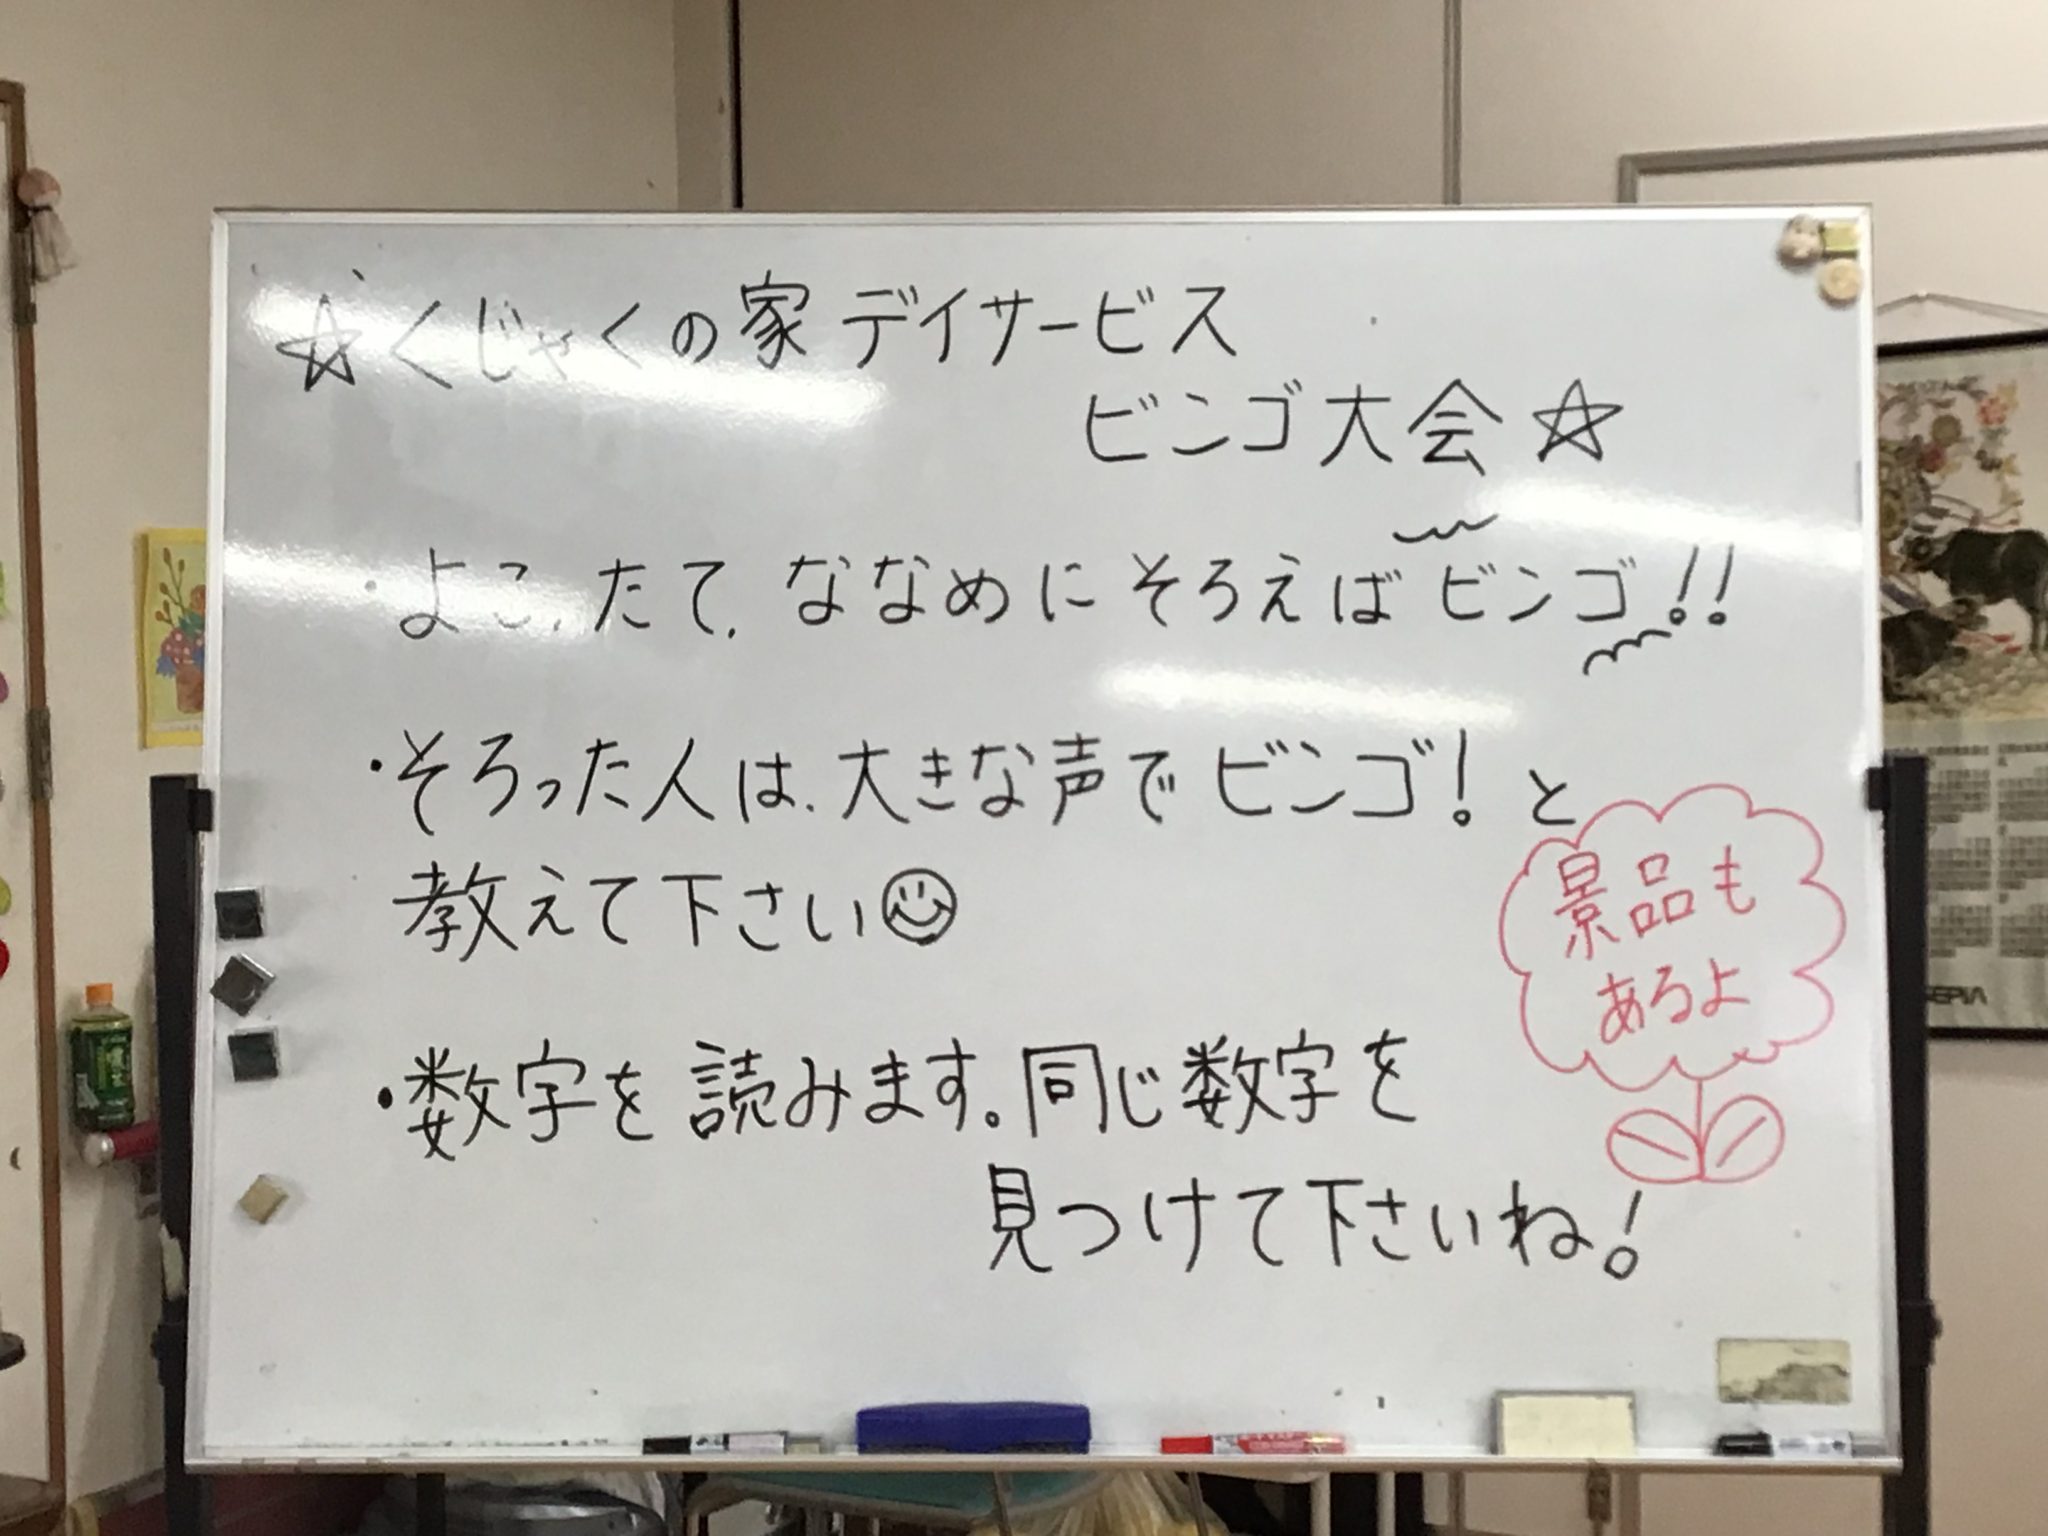 ☆くじゃくの家 デイサービス
ビンゴ大会☆
・よこ、たて、ななめにそろえばビンゴ!!
・そろった人は、大きな声でビンゴ!と
教えて下さい
景品も
あるよ
・数字を読みます。同じ数字を
見つけて下さいね!